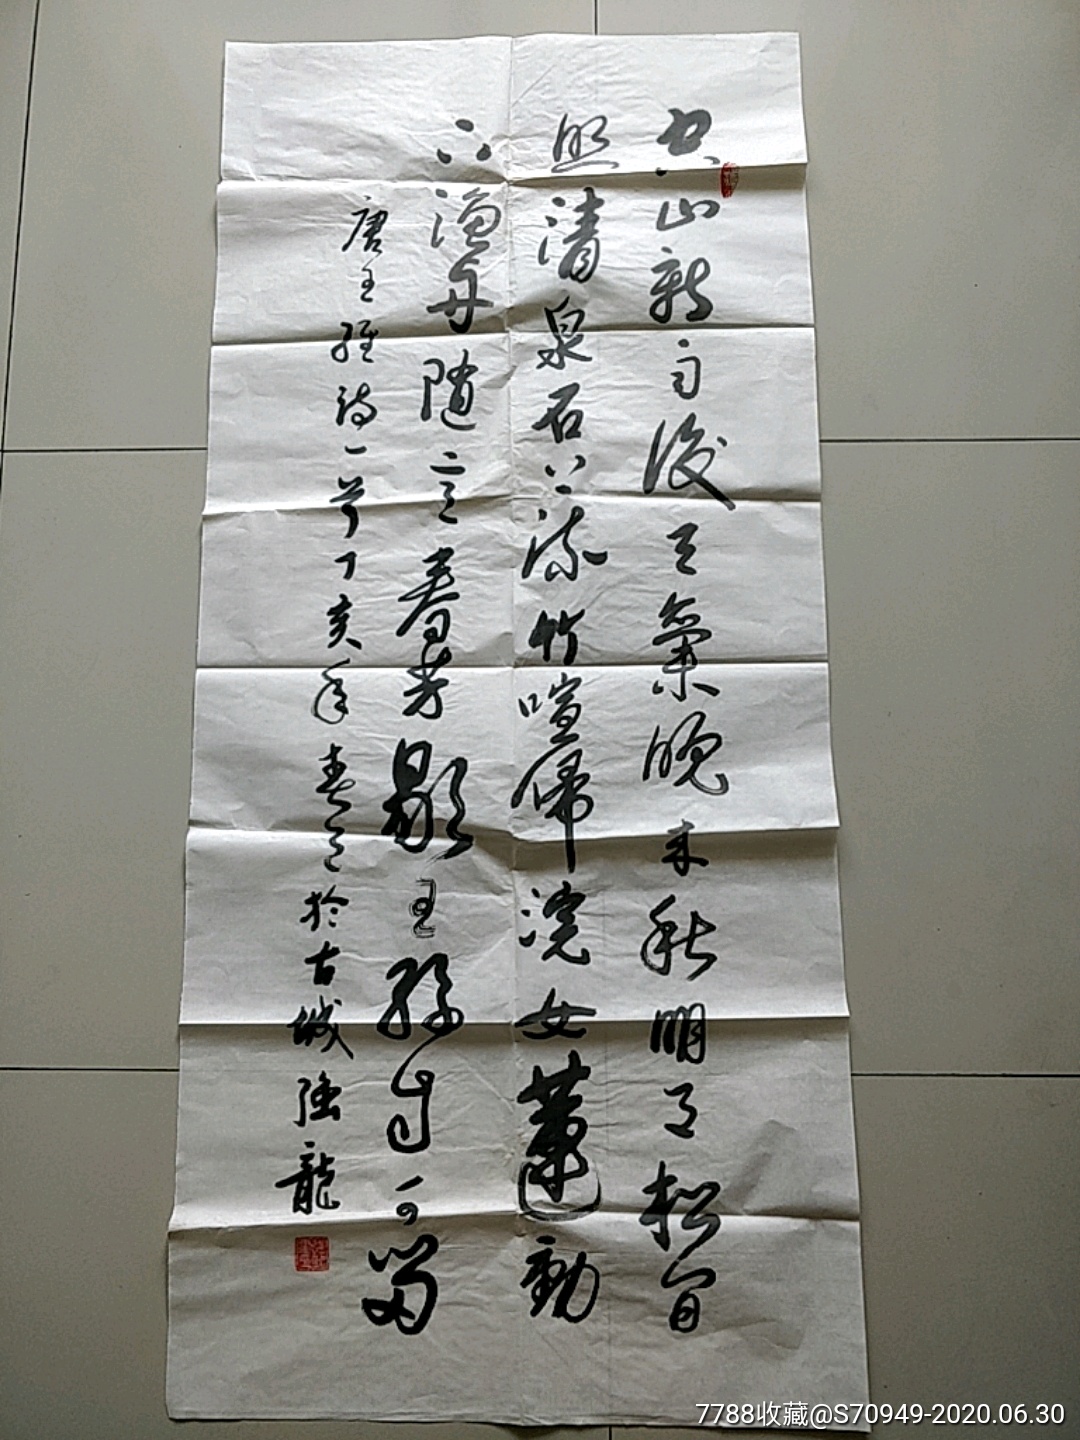 空山新雨後天氣晚來秋明月松間
照清泉石上流竹喧歸浣女蓮動
下漁舟隨意春芳歇王孫自可留
唐王維詩一首丁亥年春於古城強龍
7788收藏@S70949-2020.06.30